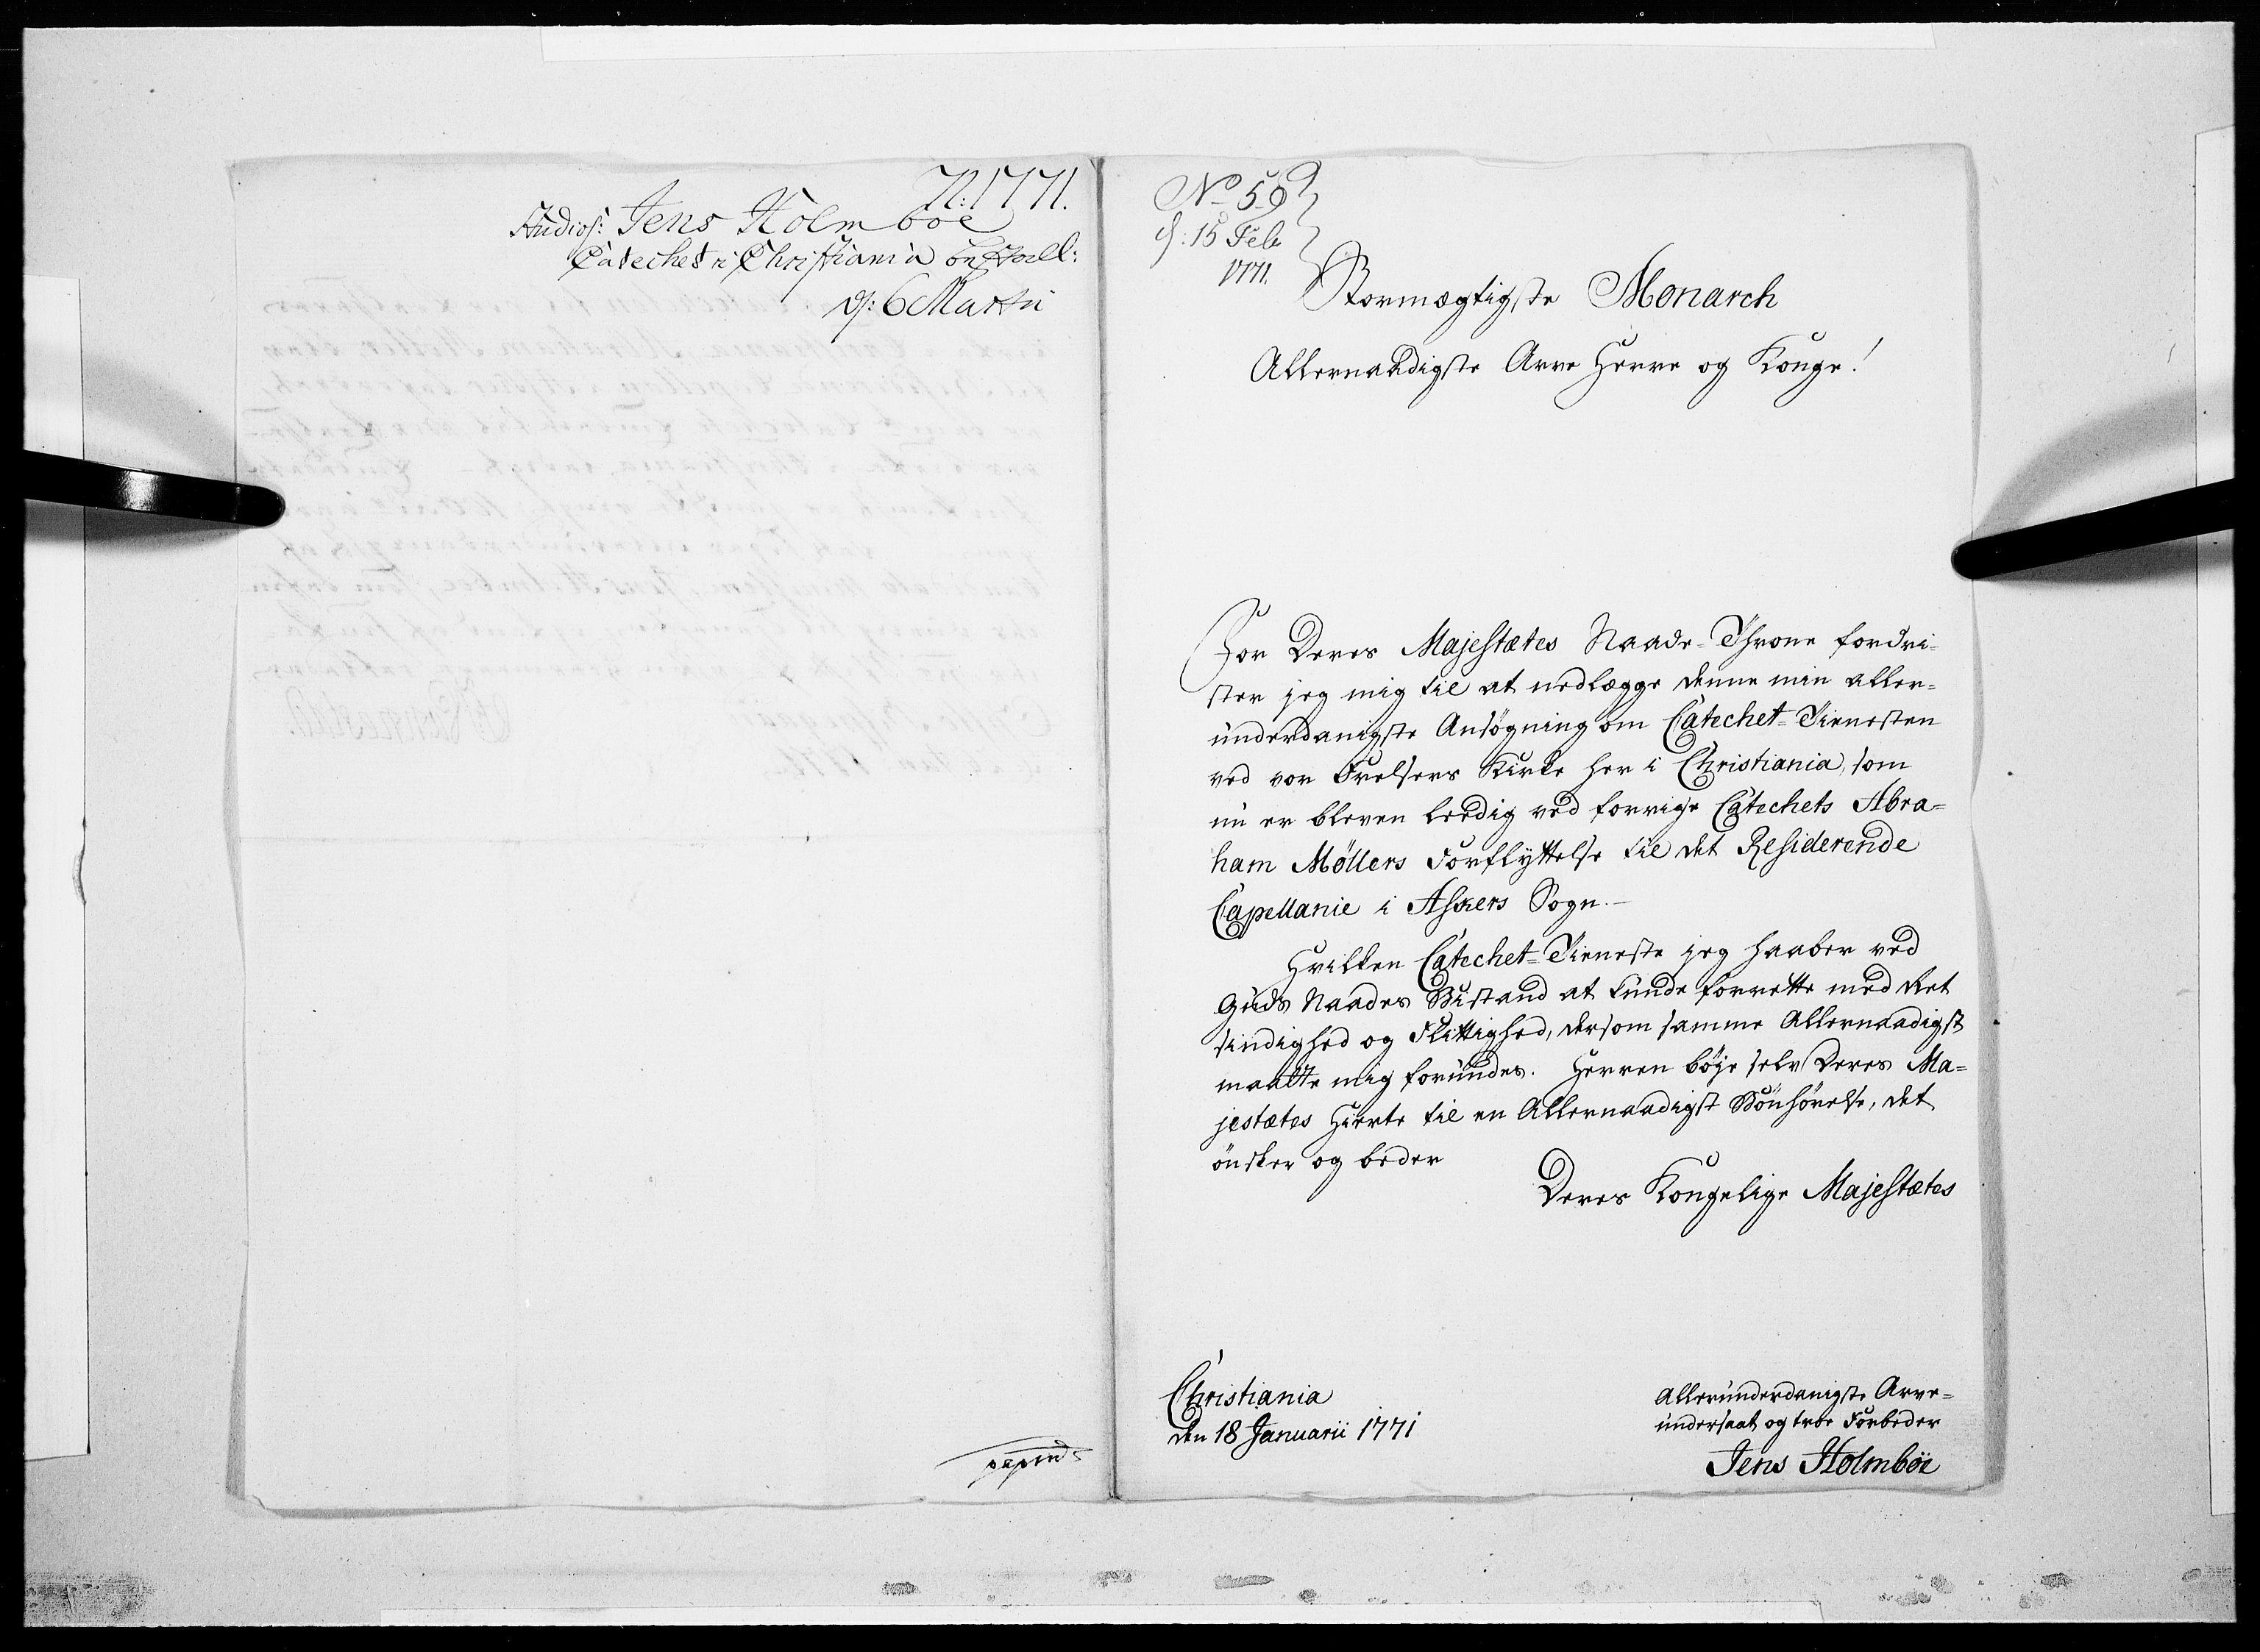 N: 1771.
Studios: Jens Holmboe
Catechet i Christiania
d: 6 Martii
No 59
d: 15 Feb
1771.
Stormægtigste Monarch
Allernaadigste Arve Herre og Konge!
For Deres Majestætes Naade-Throne fordri-
ster jeg mig til at nedlægge denne min aller-
underdanigste Ansøgning om Catechet-Tienesten
ved vor Frelsers Kirke her i Christiania, som
nu er bleven leedig ved forrige Catechets Abra-
ham Møllers Forflyttelse til det Residerende
Capellanie i Askers Sogn.-
Hvilken Catechet-Tieneste jeg haaber ved
Guds Naades Bistand at kunde forrette med Ret
sindighed og Flittighed, dersom samme Allernaadigst
maatte mig forundes. Herren bøje selv Deres Ma-
jestætes Hierte til en Allernaadigst Bönhörelse, det
önsker og beder
Deres Kongelige Majestætes
Christiania
den 18 Januarii 1771
Allerunderdanigste Arve-
undersaat og troe Forbeder
Jens Holmböe